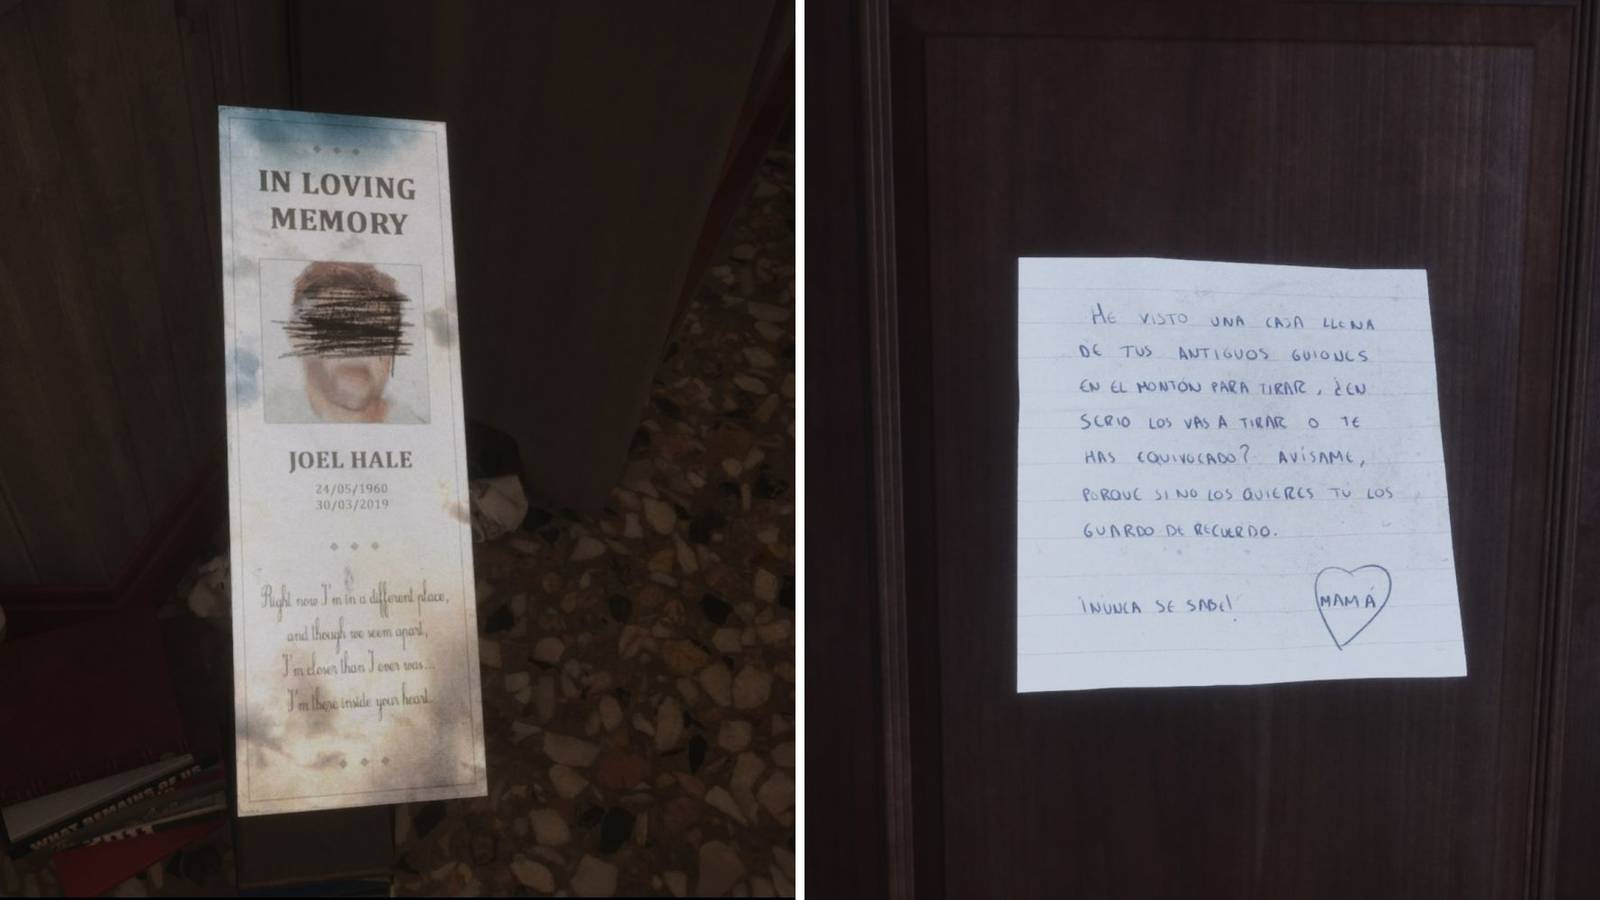 IN LOVING
MEMORY
JOEL HALE
24/05/1960
30/03/2019
Right now I'm in a different place,
and though we seem apart,
I'm closer than I ever was...
I'm there inside your heart.
WHAT REMAINS OF US
HE VISTO UNA CAJA LLENA
DE TUS ANTIGUOS GUIONES
EN EL MONTÓN PARA TIRAR, ¿EN
SERIO LOS VAS A TIRAR O TE
HAS EQUIVOCADO? AVÍSAME,
PORQUE SI NO LOS QUIERES TÚ LOS
GUARDO DE RECUERDO.
¡NUNCA SE SABE!
MAMÁ